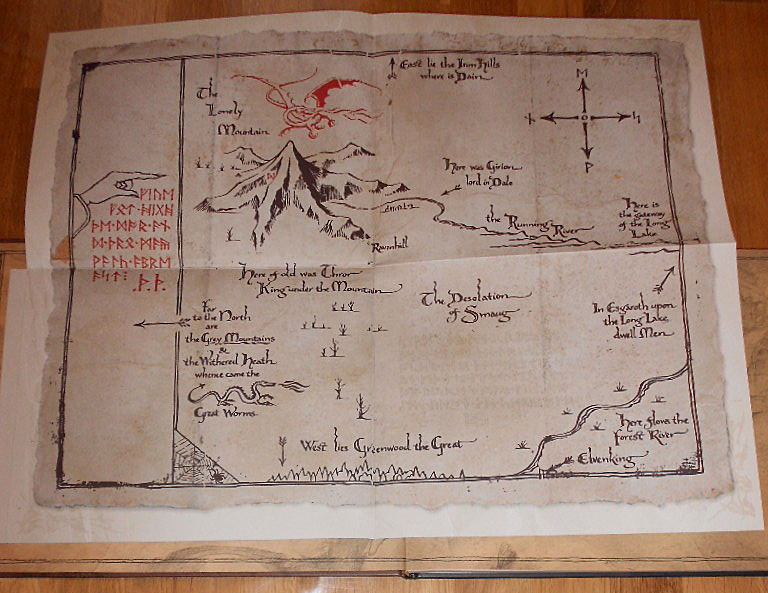 The
Lonely
Mountain
East lie the Iron Hills
where is Dain
ᛗ
ᚾ
ᛋ
ᚹ
Here was Girion
lord in Dale
ᚠᛁᚢᛖ
ᚠᛟᛏ᛫ᚻᛁᚷᚻ
ᚹᚪᛚᚳ᛫ᚪᛒᚱᛖ
ᚪᛋᛏ᛬
᛫ᚦ᛫ᚦ᛫
the Running River
Here is
the gateway
of the Long
Lake
Ravenhill
Here of old was Thror
King under the Mountain
The Desolation
of Smaug
Far
to the North
are
the Grey Mountains
&
the Withered Heath
whence came the
Great Worms
In Esgaroth upon
the Long Lake
dwell Men
West lies Greenwood the Great
Here flows the
Forest River
Elvenking